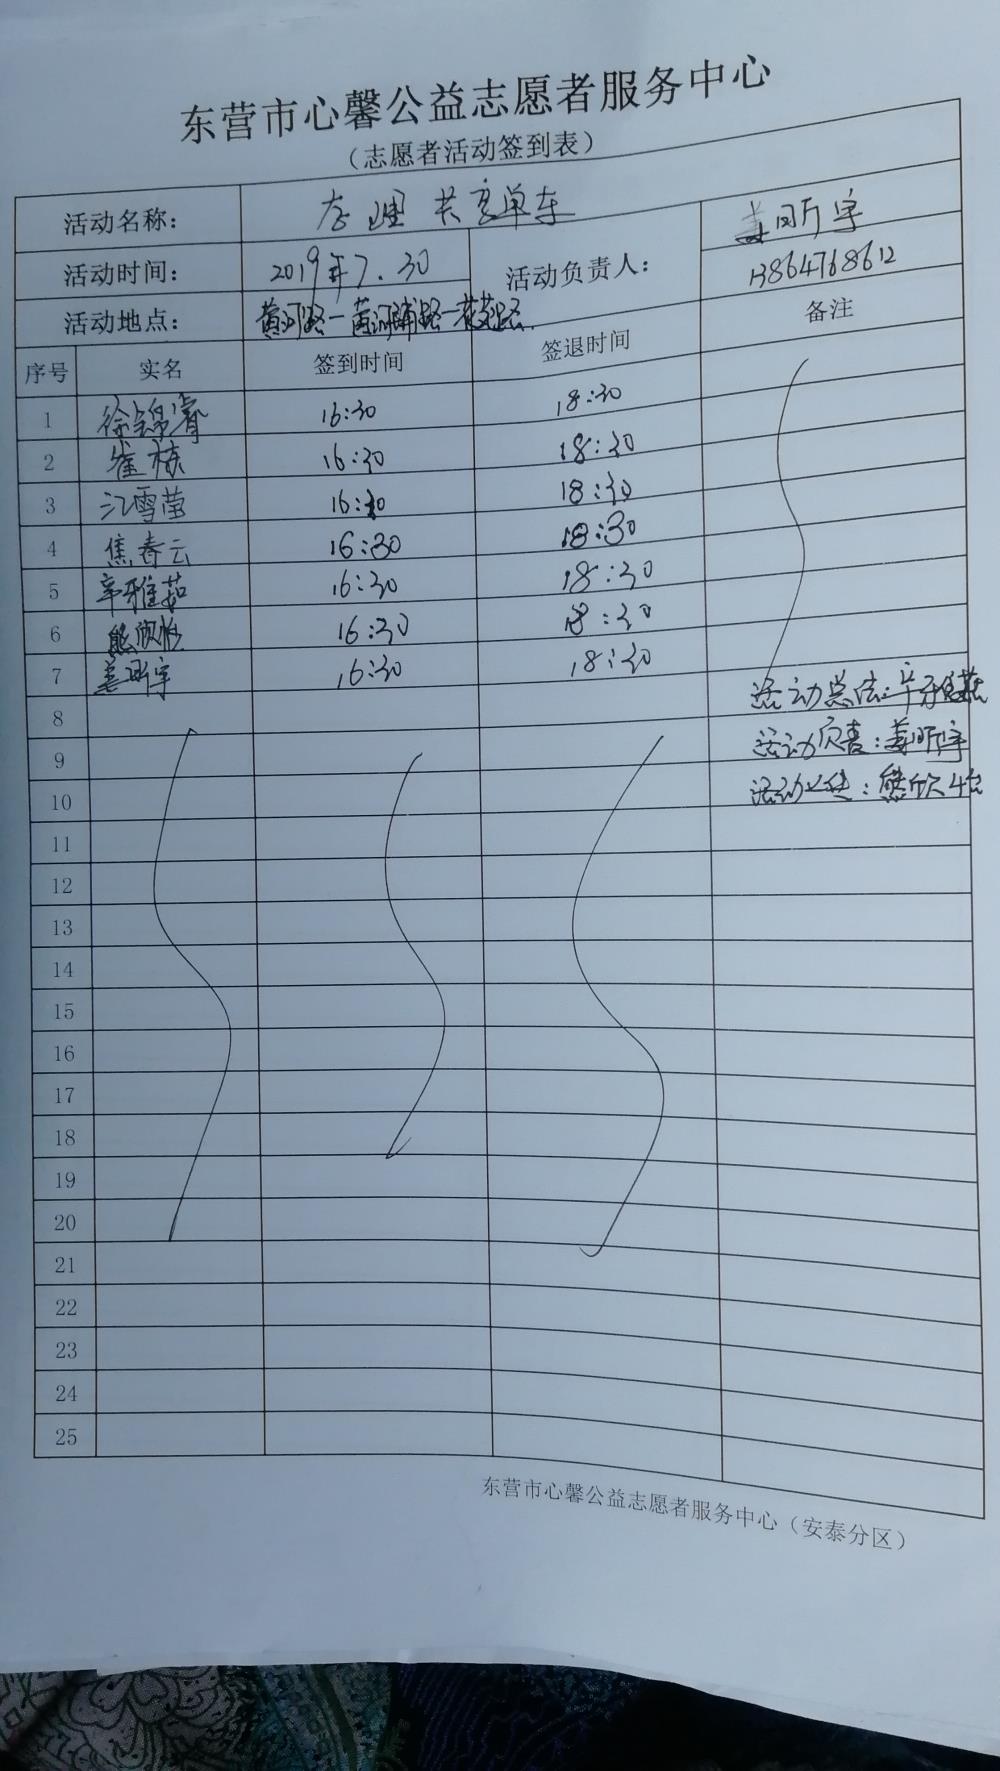 东营市心馨公益志愿者服务中心
（志愿者活动签到表）
活动名称： 理 共享单车
活动时间： 2019年7.30 活动负责人： 姜昕宇 13864768612
活动地点： 黄河路一黄河辅路一
序号 实名 签到时间 签退时间 备注
1 徐锦睿 16:30 18:30
2 崔栋 16:30 18:30
3 江雪莹 16:30 18:30
4 焦春云 16:30 18:30
5 辛雅茹 16:30 18:30
6 熊欣怡 16:30 18:30
7 姜昕宇 16:30 18:30
8 活动总结：辛雅茹
9 活动负责：姜昕宇
10 活动：熊欣怡
11
12
13
14
15
16
17
18
19
20
21
22
23
24
25
东营市心馨公益志愿者服务中心（安泰分区）